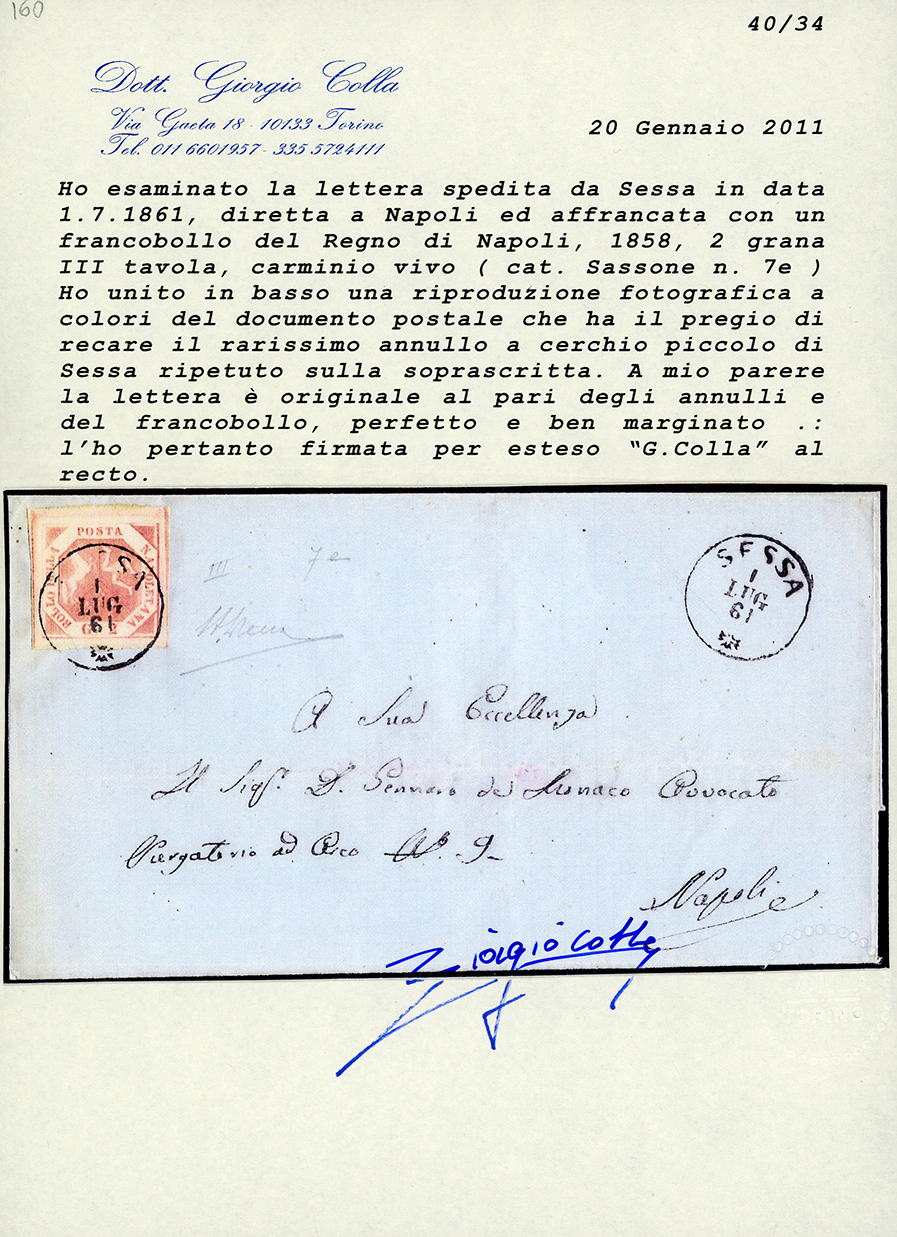 160
40/34
Dott. Giorgio Colla
Via Gaeta 18 - 10133 Torino
Tel. 011 6601957 - 335 5724111
20 Gennaio 2011
Ho esaminato la lettera spedita da Sessa in data
1.7.1861, diretta a Napoli ed affrancata con un
francobollo del Regno di Napoli, 1858, 2 grana
III tavola, carminio vivo ( cat. Sassone n. 7e )
Ho unito in basso una riproduzione fotografica a
colori del documento postale che ha il pregio di
recare il rarissimo annullo a cerchio piccolo di
Sessa ripetuto sulla soprascritta. A mio parere
la lettera è originale al pari degli annulli e
del francobollo, perfetto e ben marginato .:
l'ho pertanto firmata per esteso “G.Colla” al
recto.
POSTA
NAPOLETANA
BOLLO DELLA
1
LUG
61
III 7e
SESSA
1
LUG
61
A Sua Eccellenza
Il Sigr. D. Gennaro de Monaco Avvocato
Purgatorio ad Arco N. 9
Napoli
Giorgio Colla
TORINO